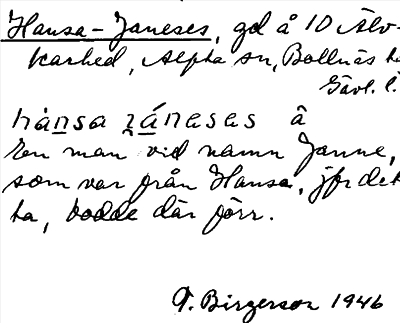 Hansa-Janeses, gd å 10 Älv-
karhed, Alfta sn, Bollnäs
Gävl. l.
hánsa jáneses â
En man vid namn Janne,
som var från Hansa, jfr det-
ta, bodde där förr.
G. Birgerson 1946